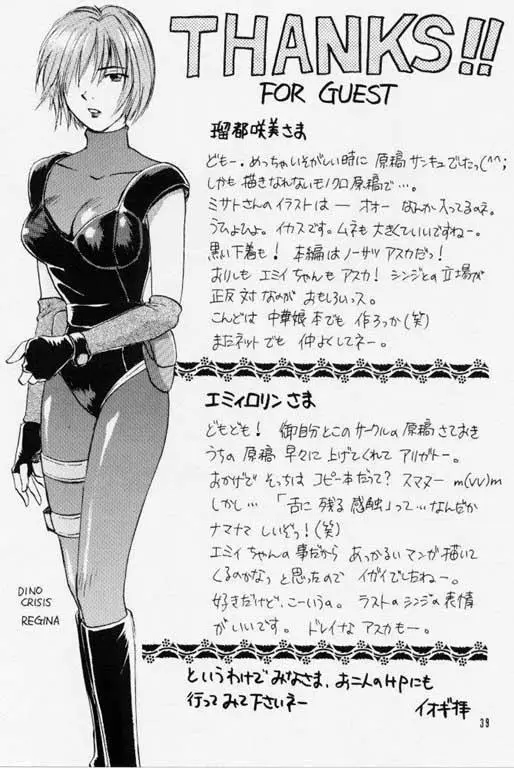 THANKS!!
FOR GUEST
瑠都咲美さま
どもー。めっちゃいそがしい時に 原稿サンキュでしたっ(^^;
しかも描きなれないモノクロ原稿で…。
ミサトさんのイラストは ― オォー なんか入ってるのネ。
うひょひょ。イカスです。ムネも大きくていいですねー。
黒い下着も! 本編はノーサツアスカだっ!
おりしも エミィちゃんもアスカ! シンジとの立場が
正反対なのが おもしろいっス。
こんどは 中華娘本でも 作ろっか(笑)
またネットでも 仲よくしてネー。
エミィロリンさま
どもども! 御自分とこのサークルの原稿さておき
うちの原稿 早々に上げてくれて アリガトー。
おかげで そっちは コピー本だって? スマヌー m(vv)m
しかし… 「舌に残る感触」って… なんだか
ナマナマしいぞっ!(笑)
エミィちゃんの事だから あっかるいマンガ描いて
くるのかなっ と思ったので イガイでしたねー。
好きだけど、こーいうの。 ラストのシンジの表情
がいいです。 ドレイなアスカもー。
というわけで みなさま、お二人のHPにも
行ってみて下さいネー
イオギ拝
DINO
CRISIS
REGINA
39